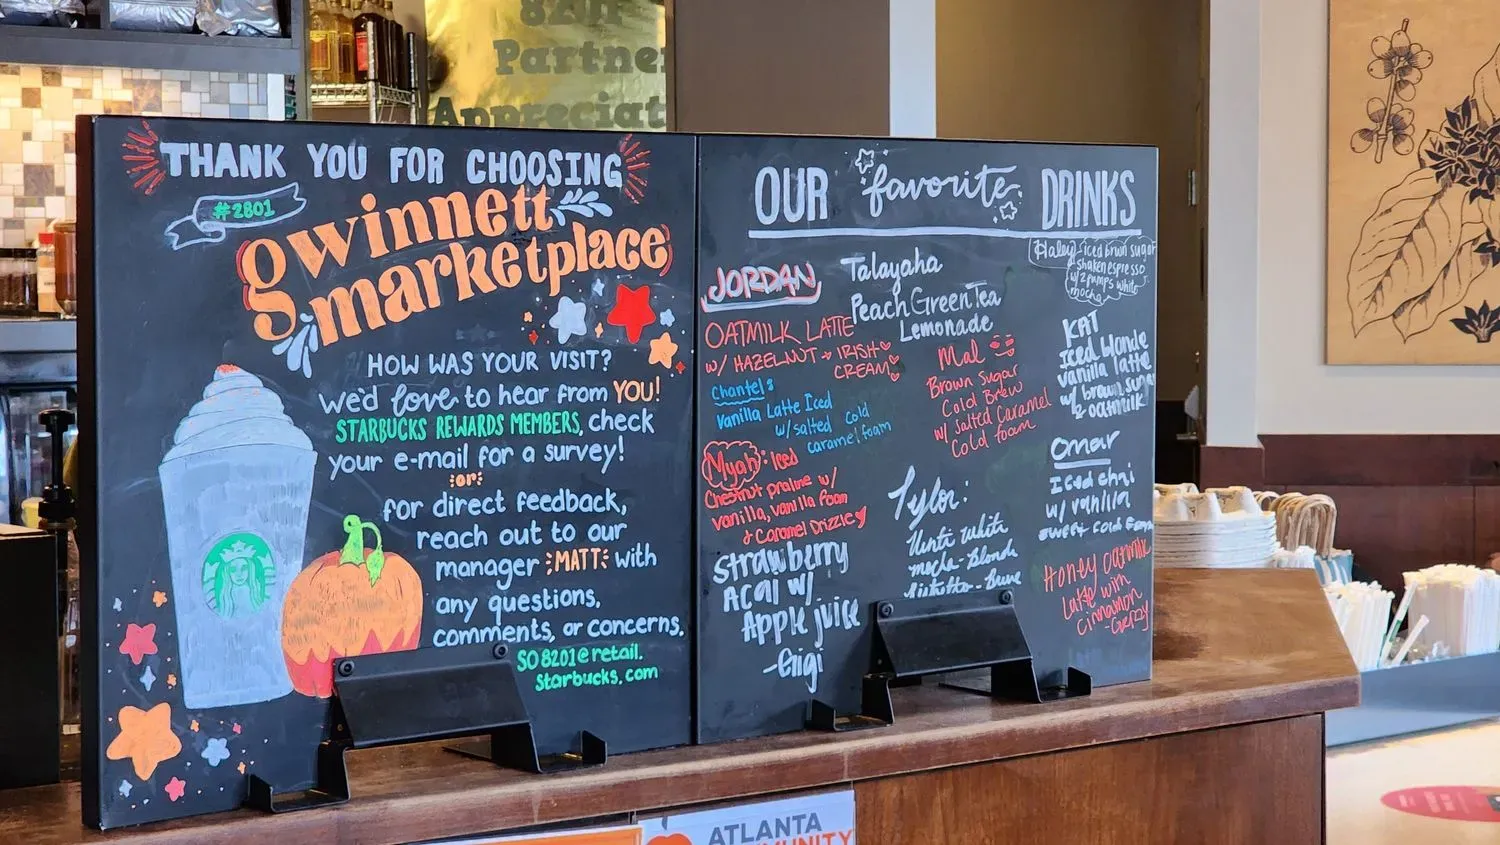 8201
Partner
Appreciat
THANK YOU FOR CHOOSING
#2801
gwinnett
marketplace
HOW WAS YOUR VISIT?
we'd love to hear from YOU!
STARBUCKS REWARDS MEMBERS, check
your e-mail for a survey!
:or:
for direct feedback,
reach out to our
manager MATT with
any questions,
comments, or concerns.
SO8201@retail.
starbucks.com
OUR favorite DRINKS
JORDAN
OATMILK LATTE
w/ HAZELNUT + IRISH
CREAM
Chantel:
Vanilla Latte Iced
w/salted cold
caramel foam
Myah: Iced
Chestnut praline w/
vanilla, vanilla foam
& Caramel Drizzle
Strawberry
Acai w/
Apple juice
-Gigi
Talayaha
Peach Green Tea
Lemonade
Mal
Brown Sugar
Cold Brew
w/ salted Caramel
Cold foam
Tylor:
Venti white
mocha-Blonde
Ristretto-
Haley iced brown sugar
shaken espresso
w/ 2 pumps white
mocha
KAT
Iced blonde
vanilla latte
w/ brown sugar
& oatmilk
Omar
Iced chai
w/ vanilla
sweet cold foam
Honey oatmilk
Latte with
cinnamon
ATLANTA
MUNITY